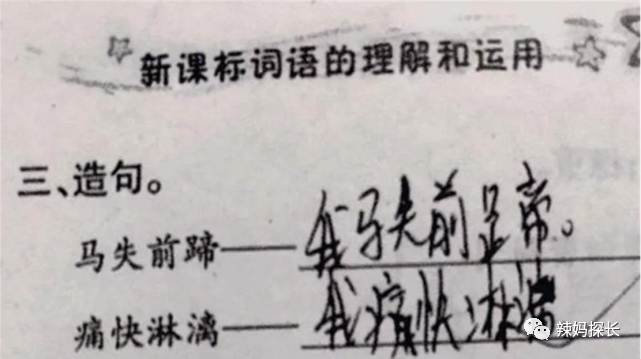 新课标词语的理解和运用
三、造句。
马失前蹄——我马失前蹄。
痛快淋漓——我痛快淋漓
辣妈探长